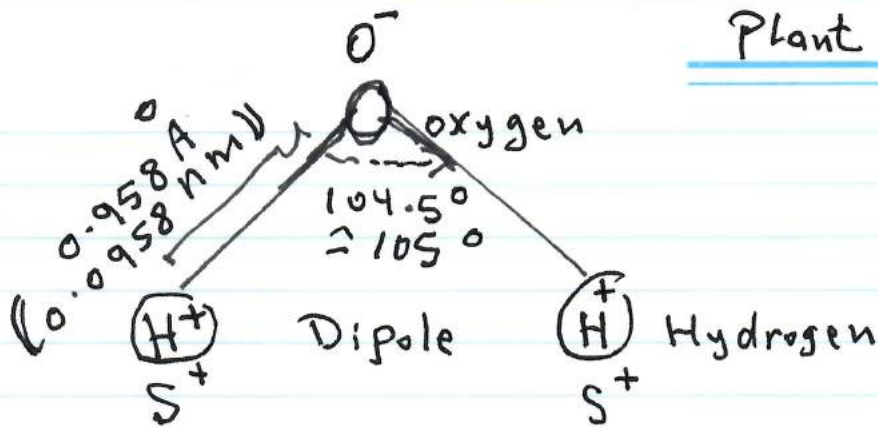 Plant
O⁻
O oxygen
0.958 Å
(0.0958 nm)
104.5°
≈ 105°
H⁺ Dipole H⁺ Hydrogen
S⁺ S⁺